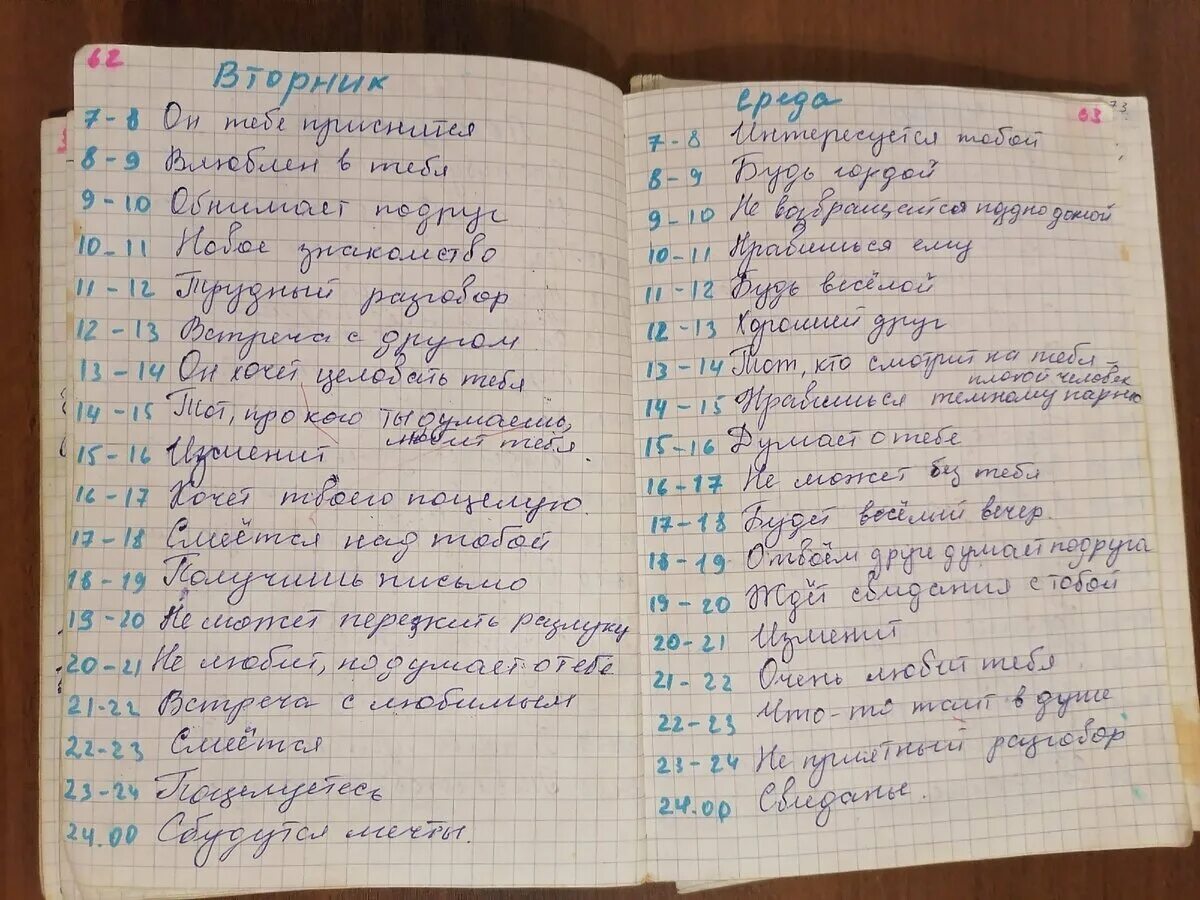 62
Вторник
7-8 Он тебе приснится
8-9 Влюблен в тебя
9-10 Обнимает подруг
10-11 Новое знакомство
11-12 Трудный разговор
12-13 Встреча с другом
13-14 Он хочет целовать тебя
14-15 Тот, про кого ты думаешь,
любит тебя.
15-16 Изменит
16-17 Хочет твоего поцелую.
17-18 Смеётся над тобой
18-19 Получишь письмо
19-20 Не может пережить разлуку
20-21 Не любит, но думает о тебе
21-22 Встреча с любимым
22-23 Смеётся
23-24 Поцелуетесь
24.00 Сбудутся мечты.
Среда
63
73
7-8 Интересуется тобой
8-9 Будь гордой
9-10 Не возвращайся поздно домой
10-11 Нравишься ему
11-12 Будь весёлой
12-13 Хороший друг
13-14 Тот, кто смотрит на тебя –
плохой человек
14-15 Нравишься темному парню
15-16 Думает о тебе
16-17 Не может без тебя
17-18 Будет весёлый вечер.
18-19 О твоём друге думает подруга
19-20 Ждёт свидания с тобой
20-21 Изменит
21-22 Очень любит тебя
22-23 Что-то таит в душе
23-24 Не приятный разговор
24.00 Свиданье.